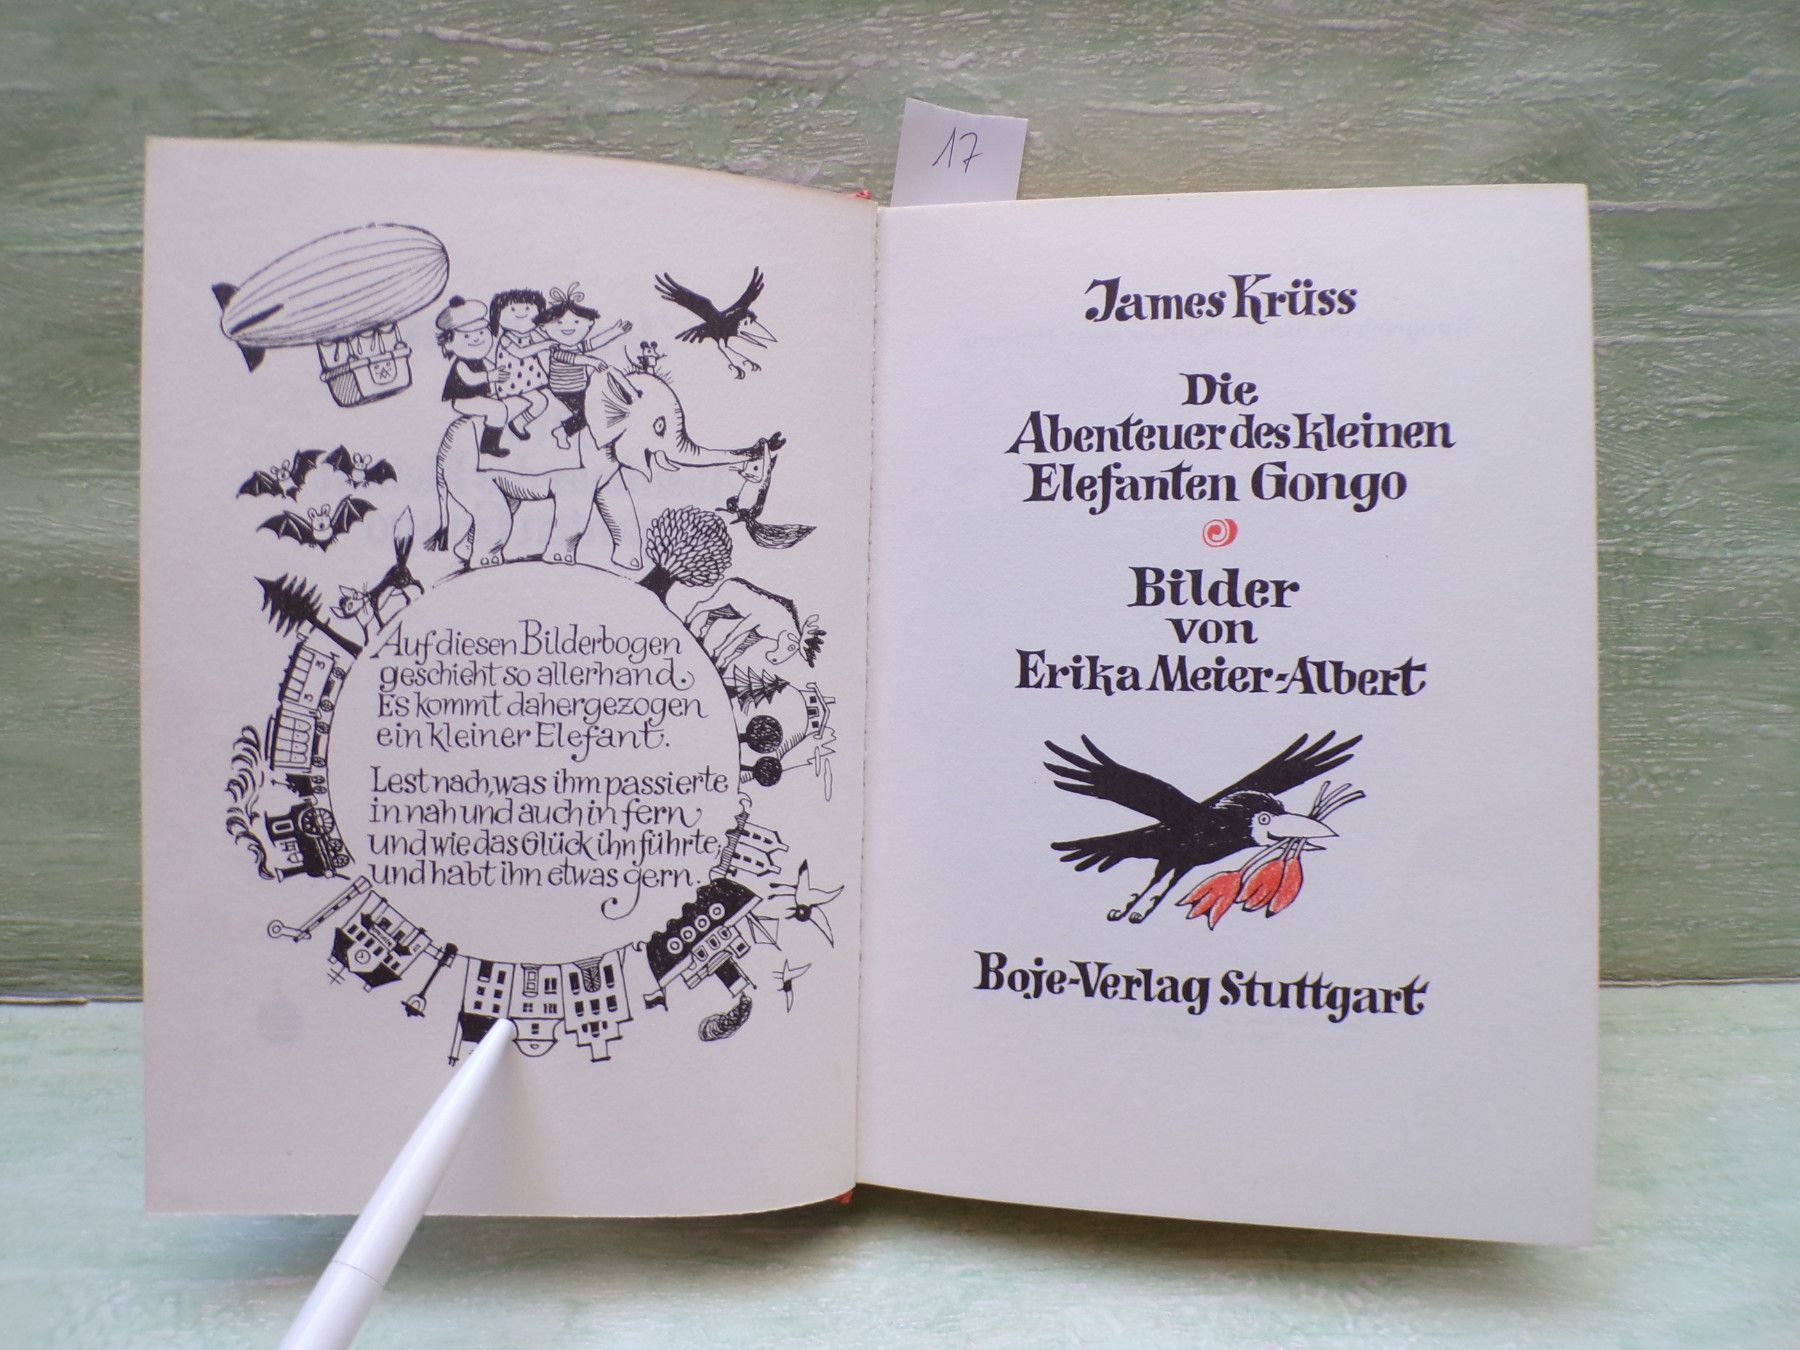 17
Auf diesen Bilderbogen
geschieht so allerhand.
Es kommt dahergezogen
ein kleiner Elefant.
Lest nach, was ihm passierte
in nah und auch in fern
und wie das Glück ihn führte,
und habt ihn etwas gern.
James Krüss
Die
Abenteuer des kleinen
Elefanten Gongo
Bilder
von
Erika Meier-Albert
Boje-Verlag Stuttgart